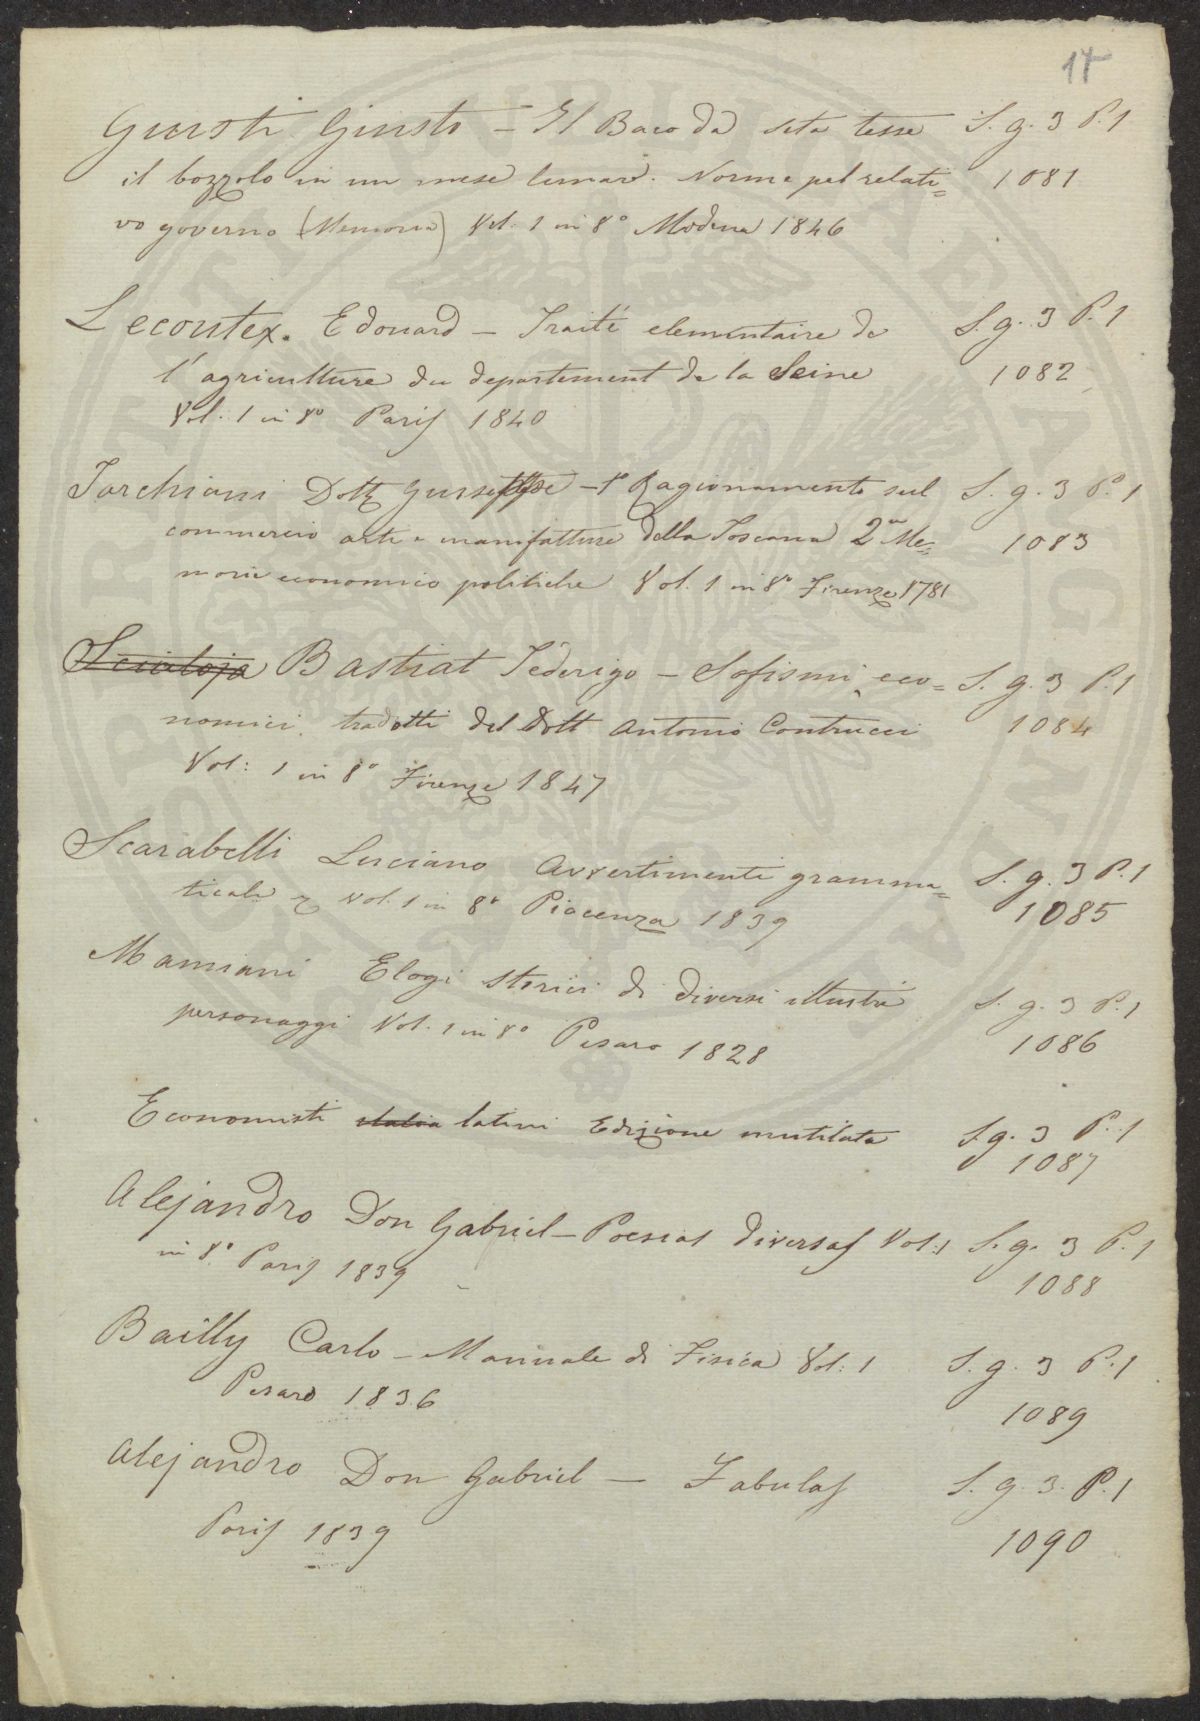 17
Giusti Giusto - Il Baco da seta tesse S. g. 3 P. 1
il bozzolo in un mese lunare. Norme pel relati= 1081
vo governo (Memoria) Vol. 1 in 8° Modena 1846
Lecoutex. Edouard - Traité elementaire de S. g. 3 P. 1
l'agriculture du departement de la Seine 1082
Vol. 1 in 8° Paris 1840
Tarchiani Dott Giuseppe - 1° Ragionamento sul S. g. 3 P. 1
commercio arti e manifatture della Toscana 2° Me= 1083
morie economico politiche Vol. 1 in 8° Firenze 1781
Scialoja Bastiat Federigo - Sofismi eco= S. g. 3 P. 1
nomici tradotti dal Dott Antonio Contrucci 1084
Vol: 1 in 8° Firenze 1847
Scarabelli Luciano Avvertimenti gramma= S. g. 3 P. 1
ticali Vol. 1 in 8° Piacenza 1839 1085
Mamiani Elogi storici di diversi illustri S. g. 3 P. 1
personaggi Vol. 1 in 8° Pesaro 1828 1086
Economisti latini Edizione mutilata S. g. 3 P. 1
1087
Alejandro Don Gabriel - Poesias diversas Vol: 1 S. g. 3 P. 1
in 8° Paris 1839 1088
Bailly Carlo - Manuale di Fisica Vol: 1 S. g. 3 P. 1
Pesaro 1836 1089
Alejandro Don Gabriel - Fabulas S. g. 3. P. 1
Paris 1839 1090